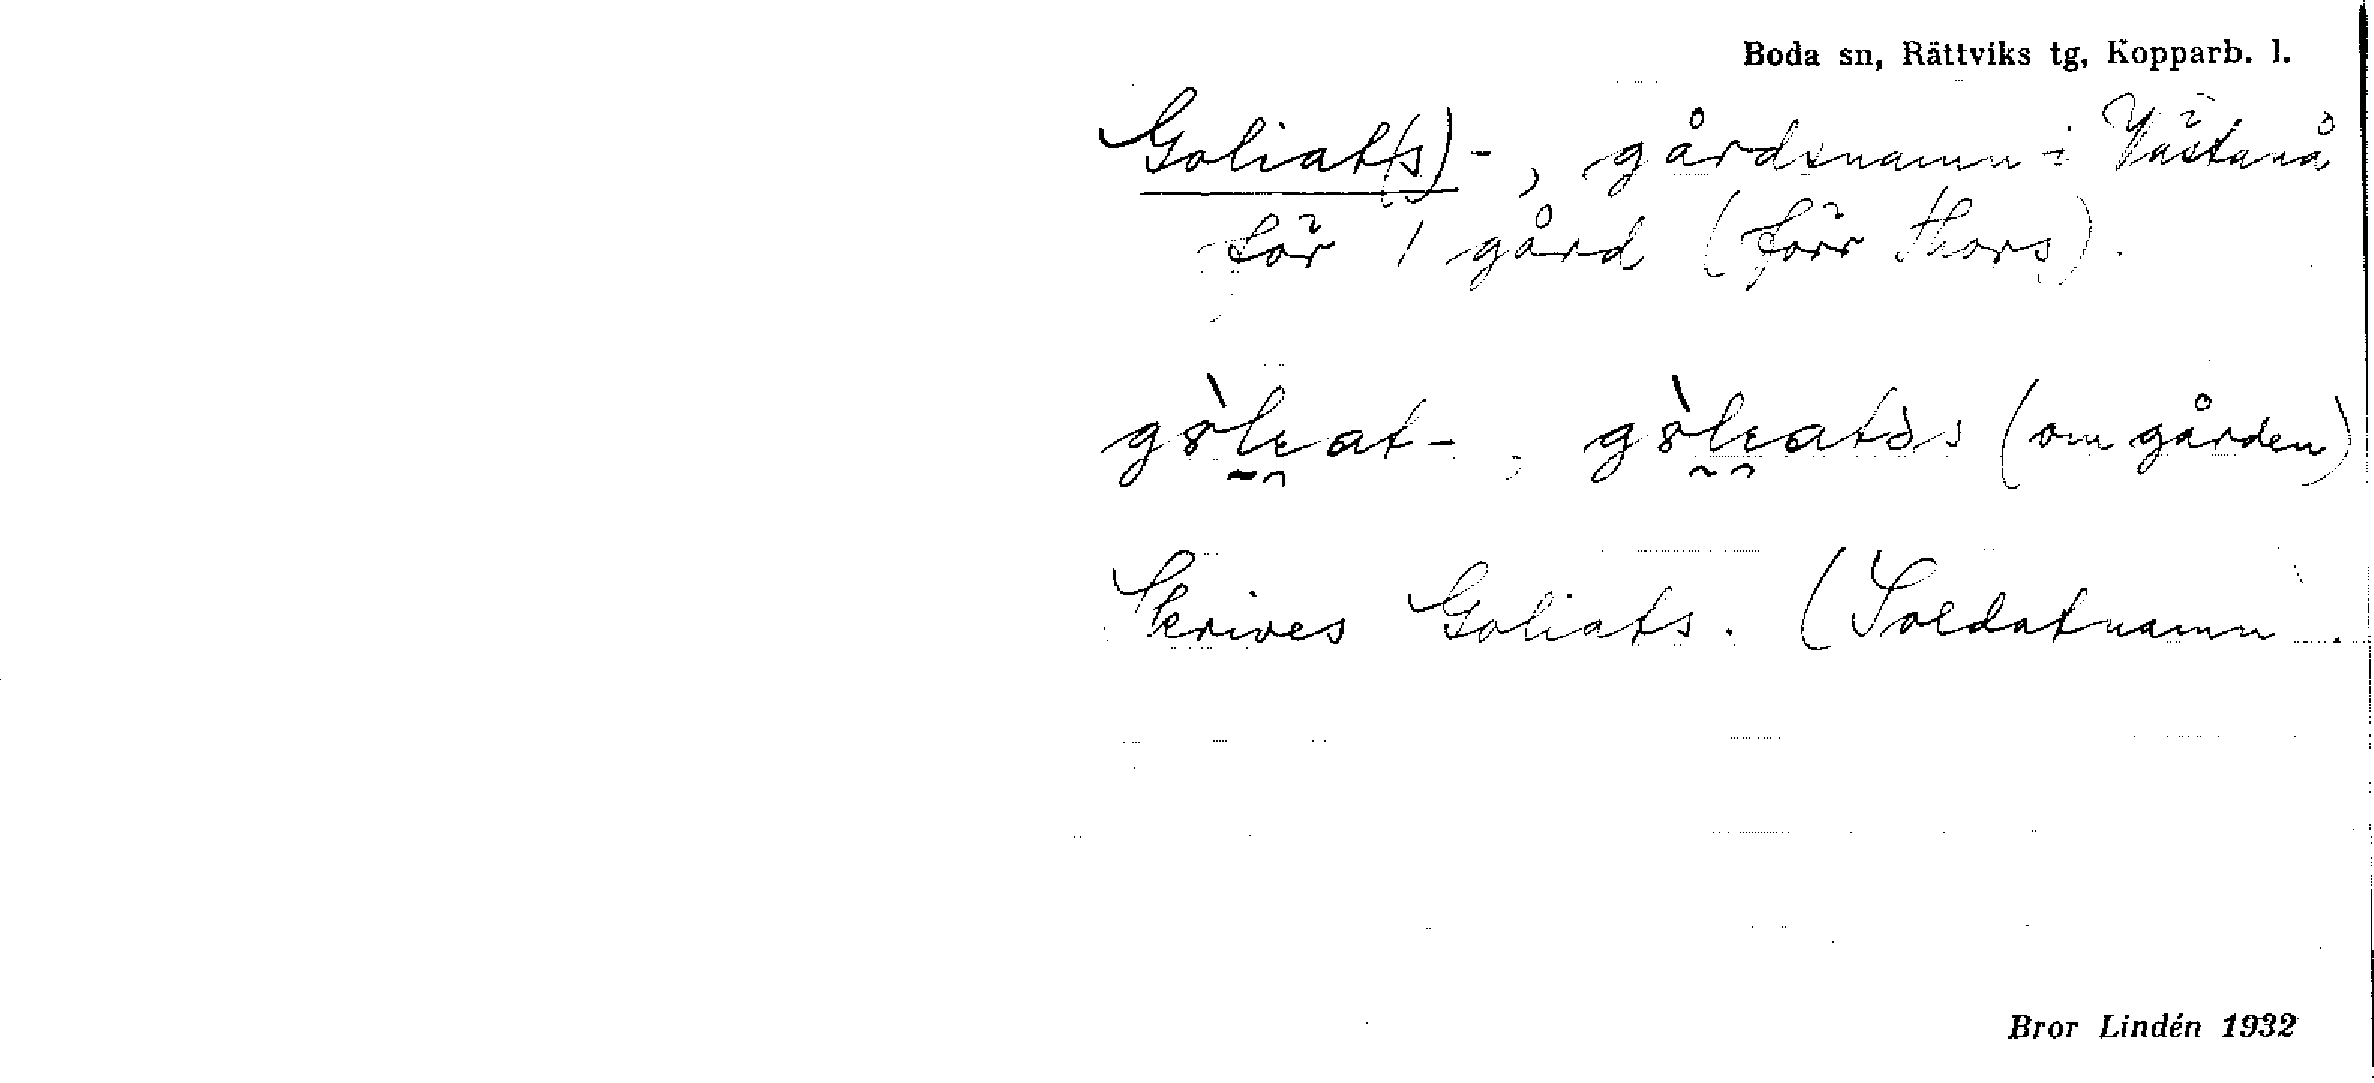 Boda sn, Rättviks tg, Kopparb. l.
Goliat(s)-, gårdsnamn i Västanå
för 1 gård (förr Thors).
(om gården)
Skrives Goliats. (Soldatnamn.
Bror Lindén 1932